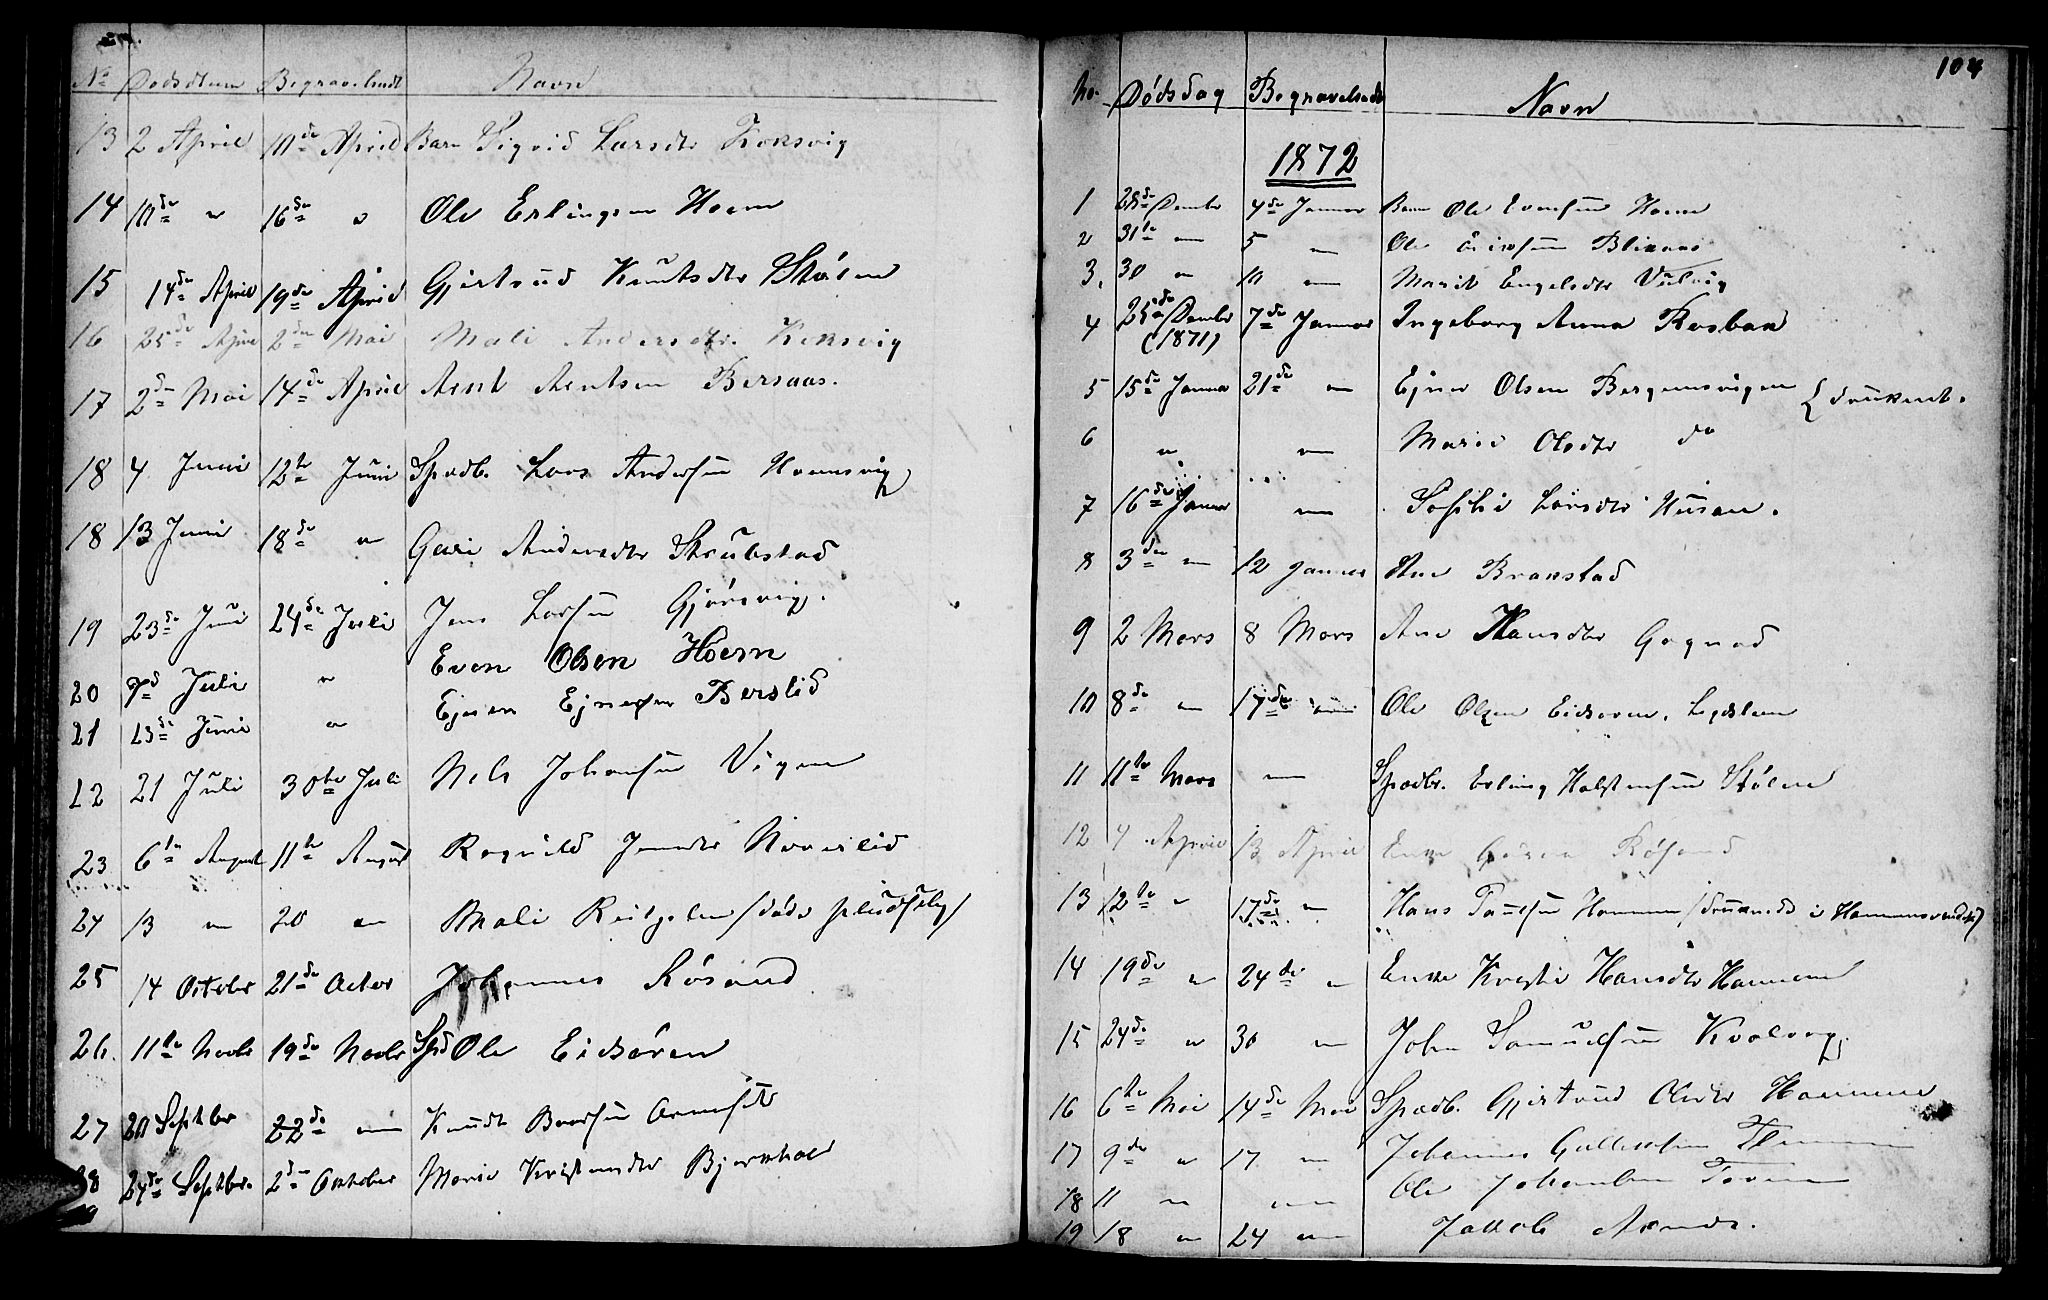 No Dødsdtum Begravelsesdt Navn
13 2 April 10de April Barn Sigrid Larsdtr Koksvig
14 10de " 16de " Ole Erlingsen Hoem
15 14de April 19de April Gjertrud Knutsdtr Stølen
16 25de April 2den Mai Mali Andersdtr. Koksvig
17 2den Mai 14de April Arnt Arntsen Bersaas.
18 4 Juni 12te Juni Spædb. Lars Andersen Hoemsvig
18 13 Juni 18de " Guri Andersdtr Strubstad
19 23de Juni 24de Juli Jens Larsen Gjørsvig.
20 7d Juli " Even Olsen Hoem
21 23de Juni " Ejner Ejnersen Berslid
22 21 Juli 30te Juli Nils Johansen Vigen
23 6te August 11te August Ragnild Jonsdtr
24 13 " 20 " Mali /døde pludselig/
25 14 Octobr 21de Octor Johannes Røsand
26. 11te Novbr 19de Novbr Spd Ole Eidsøren
27 20 Septbr 22de " Knudt Baardsen
28 24de Septbr. 2den October Marie Kristensdtr Bjørnhol
104
No. Dødsdag Begravelsesdt Navn
1872
1 28de Decembr 4de Januar Barn Ole Evensen Hoem
2 31te " 5 " Ole Blixaas
3. 30 " 10 " Marit Engelsdtr
4 25de Decembr (1871) 7de Januar Ingeborg Anna Rosbak
5 15de Januar 21de " Ejner Olsen Bergemsvigen { druknet.
6 " " Marie Olsdtr do
7 16de Januar " Larsdtr Husan.
8 3de " 12 Januar Ane Brakstad
9 2 Mars 8 Mars Ane Hansdtr Gagnad
10 8de " 17de " Ole Olsen Eidsøren. Legdslem
11 11te Mars " Spædbr. Erling Halstensen Stølen
12 4 April 13 April Røsand
13 12te " 17de " Hans Paulsen Hammen /druknede i Hammensvandet/
14 19de " 24de " Kristi Hansdtr Hammen
15 24de " 30 " John Samuelsen Kvalvog.
16 6te Mai 14de Mai Spædb. Gjertrud Olsdtr Hammen
17 9de " 17 " Johannes
18 11 " " Ole Johansen
19 18 " 24 " Jakob